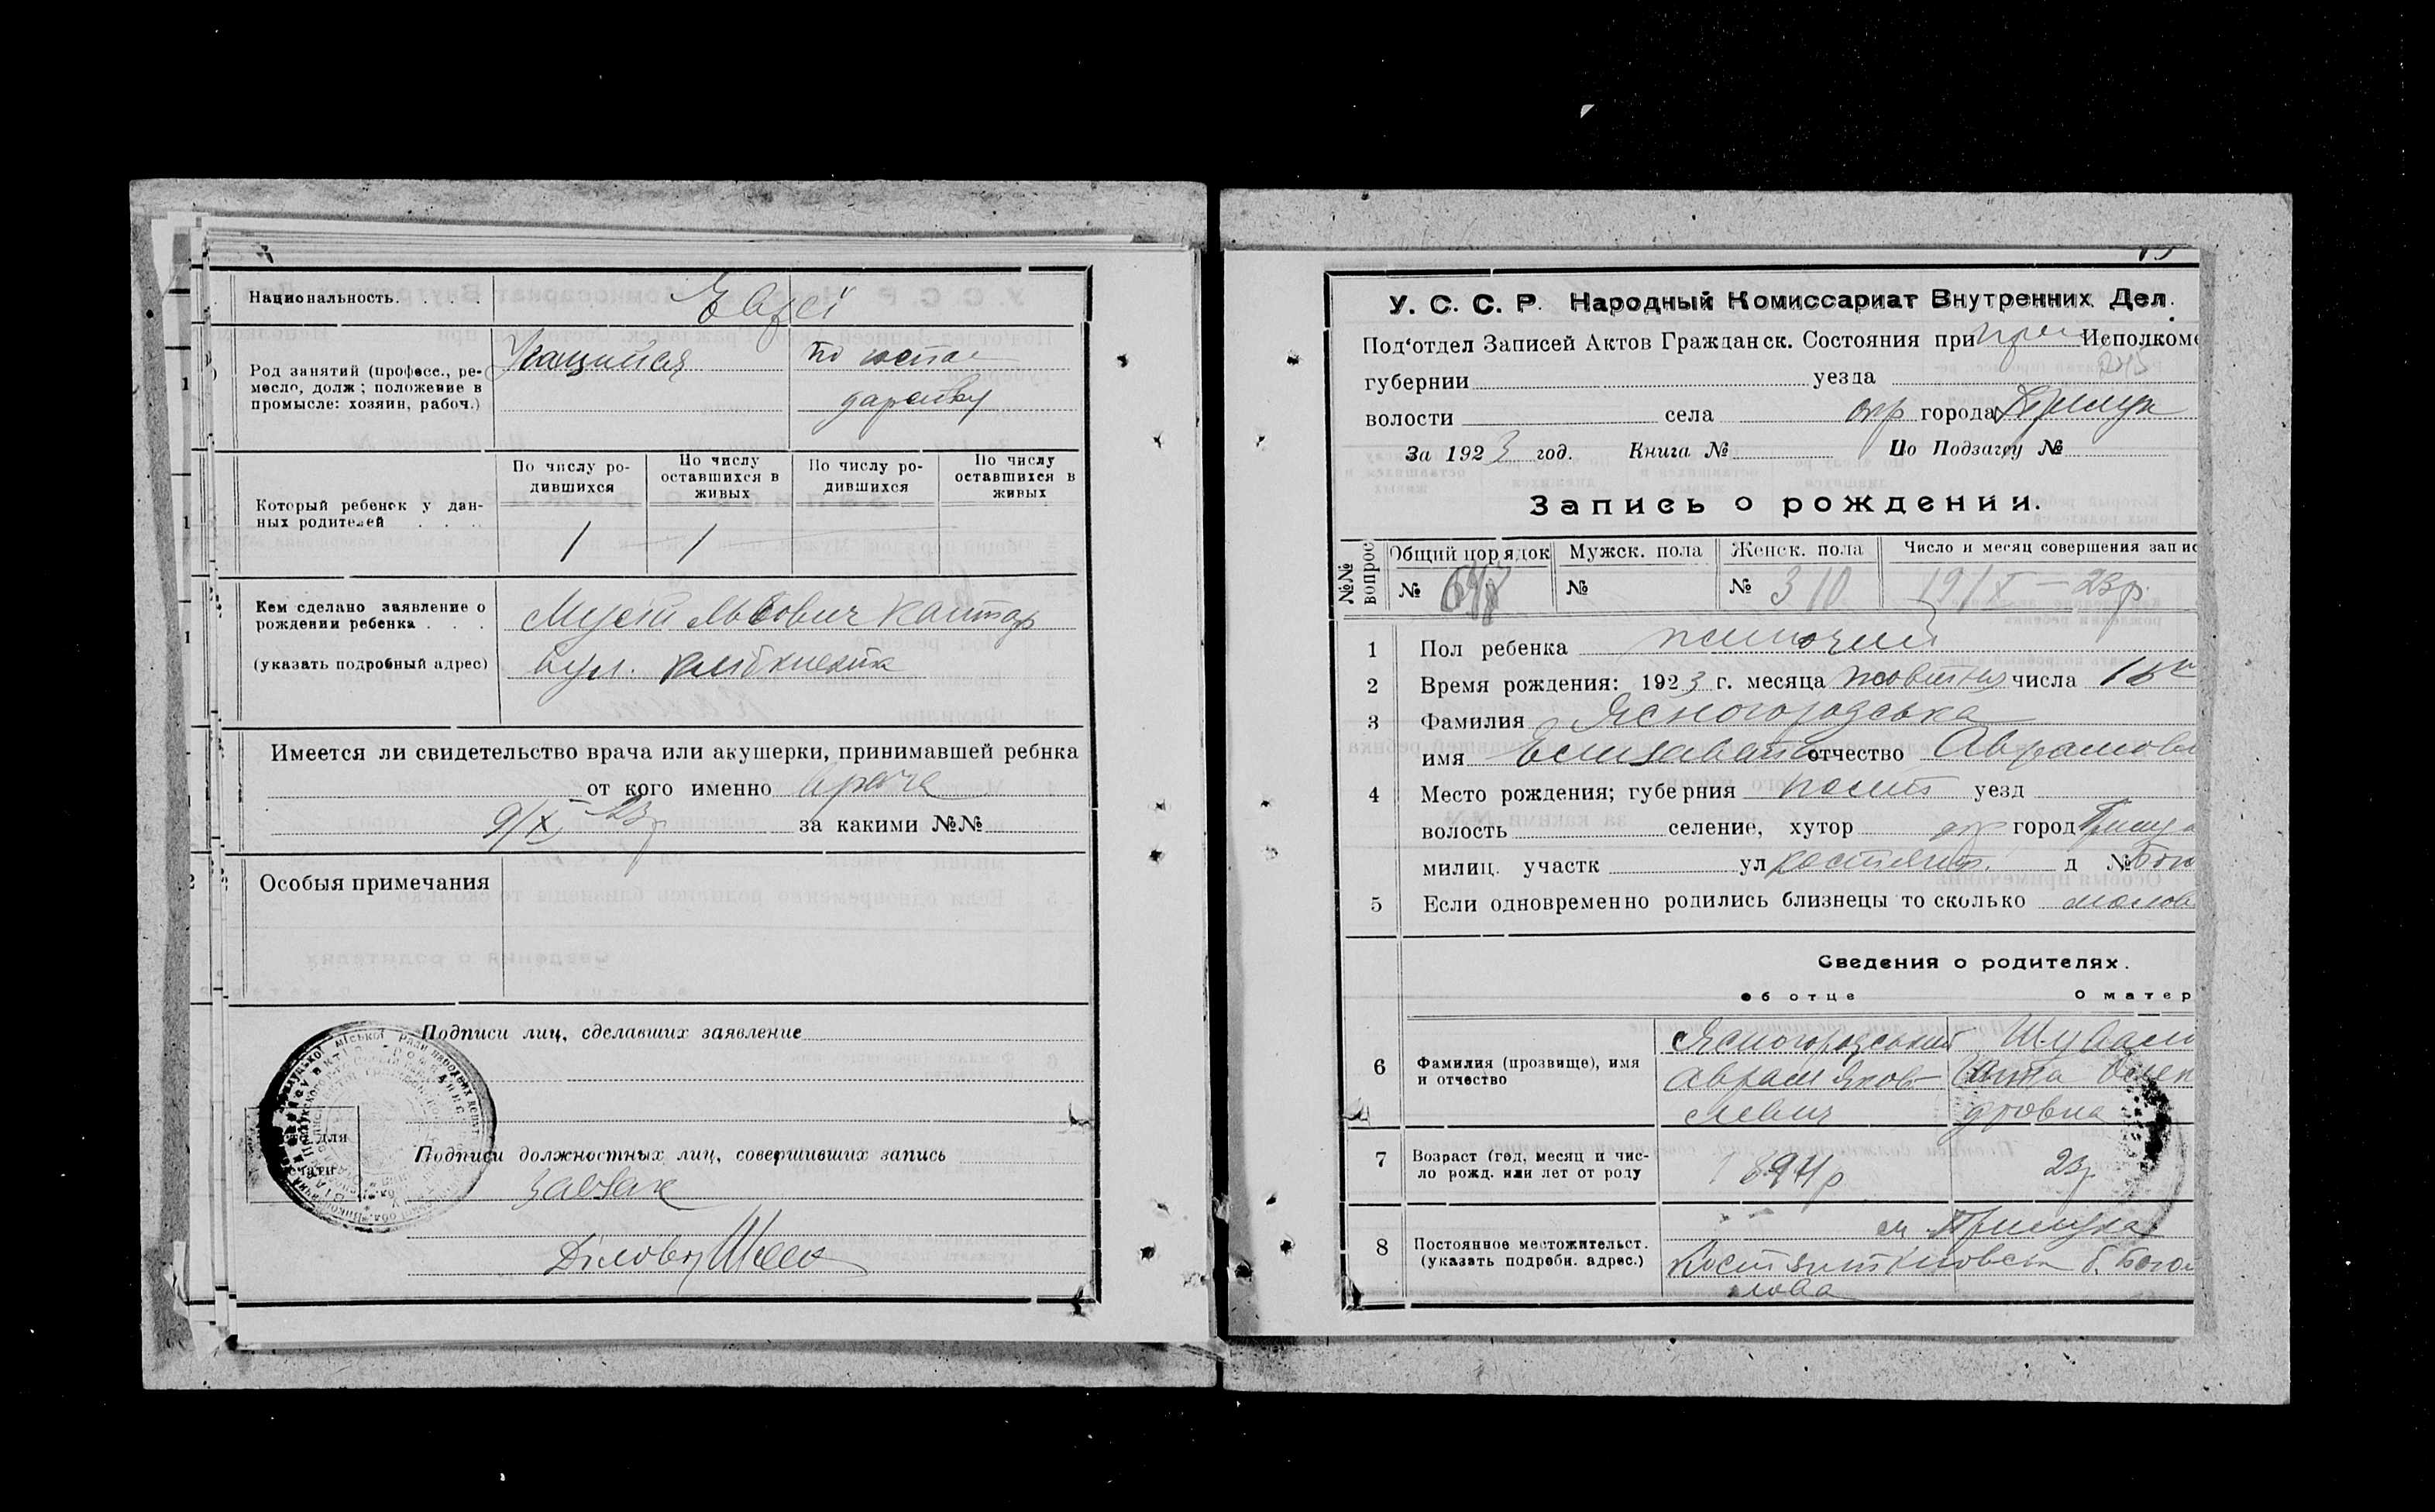 Национальность. . . . .
Евреї
Род занятий (професс., ре-
месло, долж; положение в
промысле: хозяин, рабоч.)
по
дарству
Который ребенок у дан-
ных родителей . . . .
По числу ро-
дившихся
По числу
оставшихся в
живых
По числу ро-
дившихся
По числу
оставшихся в
живых
1 1
Кем сделано заявление о
рождении ребенка . . .
(указать подробный адрес)
Мусій Львович Кантар
вул. Лібкнехта
Имеется ли свидетельство врача или акушерки, принимавшей ребнка
от кого именно врача
9/X 23р. за какими №№
Особыя примечания
Подписи лиц, сделавших заявление
Подписи должностных лиц, совершивших запись
Завзак
Діловод
для
У. С. С. Р. Народный Комиссариат Внутренних Дел.
Под‘отдел Записей Актов Гражданск. Состояния при Исполком
губернии уезда
волости села окр города Прилук
За 1923 год. Книга № По Подзагсу №
Запись о рождении.
№№
вопрос
Общий порядок
Мужск. пола
Женск. пола
Число и месяц совершения запис
№ № № 310 19/X – 23р.
1 Пол ребенка жіночий
2 Время рождения: 1923 г. месяца жовтня числа
3 Фамилия Ясногородська
имя Єлизавета отчество Аврамов
4 Место рождения; губерния уезд
волость селение, хутор окр город Прилук
милиц. участк ул костянт. д №
5 Если одновременно родились близнецы то сколько
Сведения о родителях.
об отце
о матер
6 Фамилия (прозвище), имя
и отчество
Ясногородський
Аврам Янов
левич
дровна
7 Возраст (год, месяц и чис-
ло рожд. или лет от роду
1894р
23р
8 Постоянное местожительст.
(указать подробн. адрес.)
м Прилука
Костянтиновськ б. Бого
лова